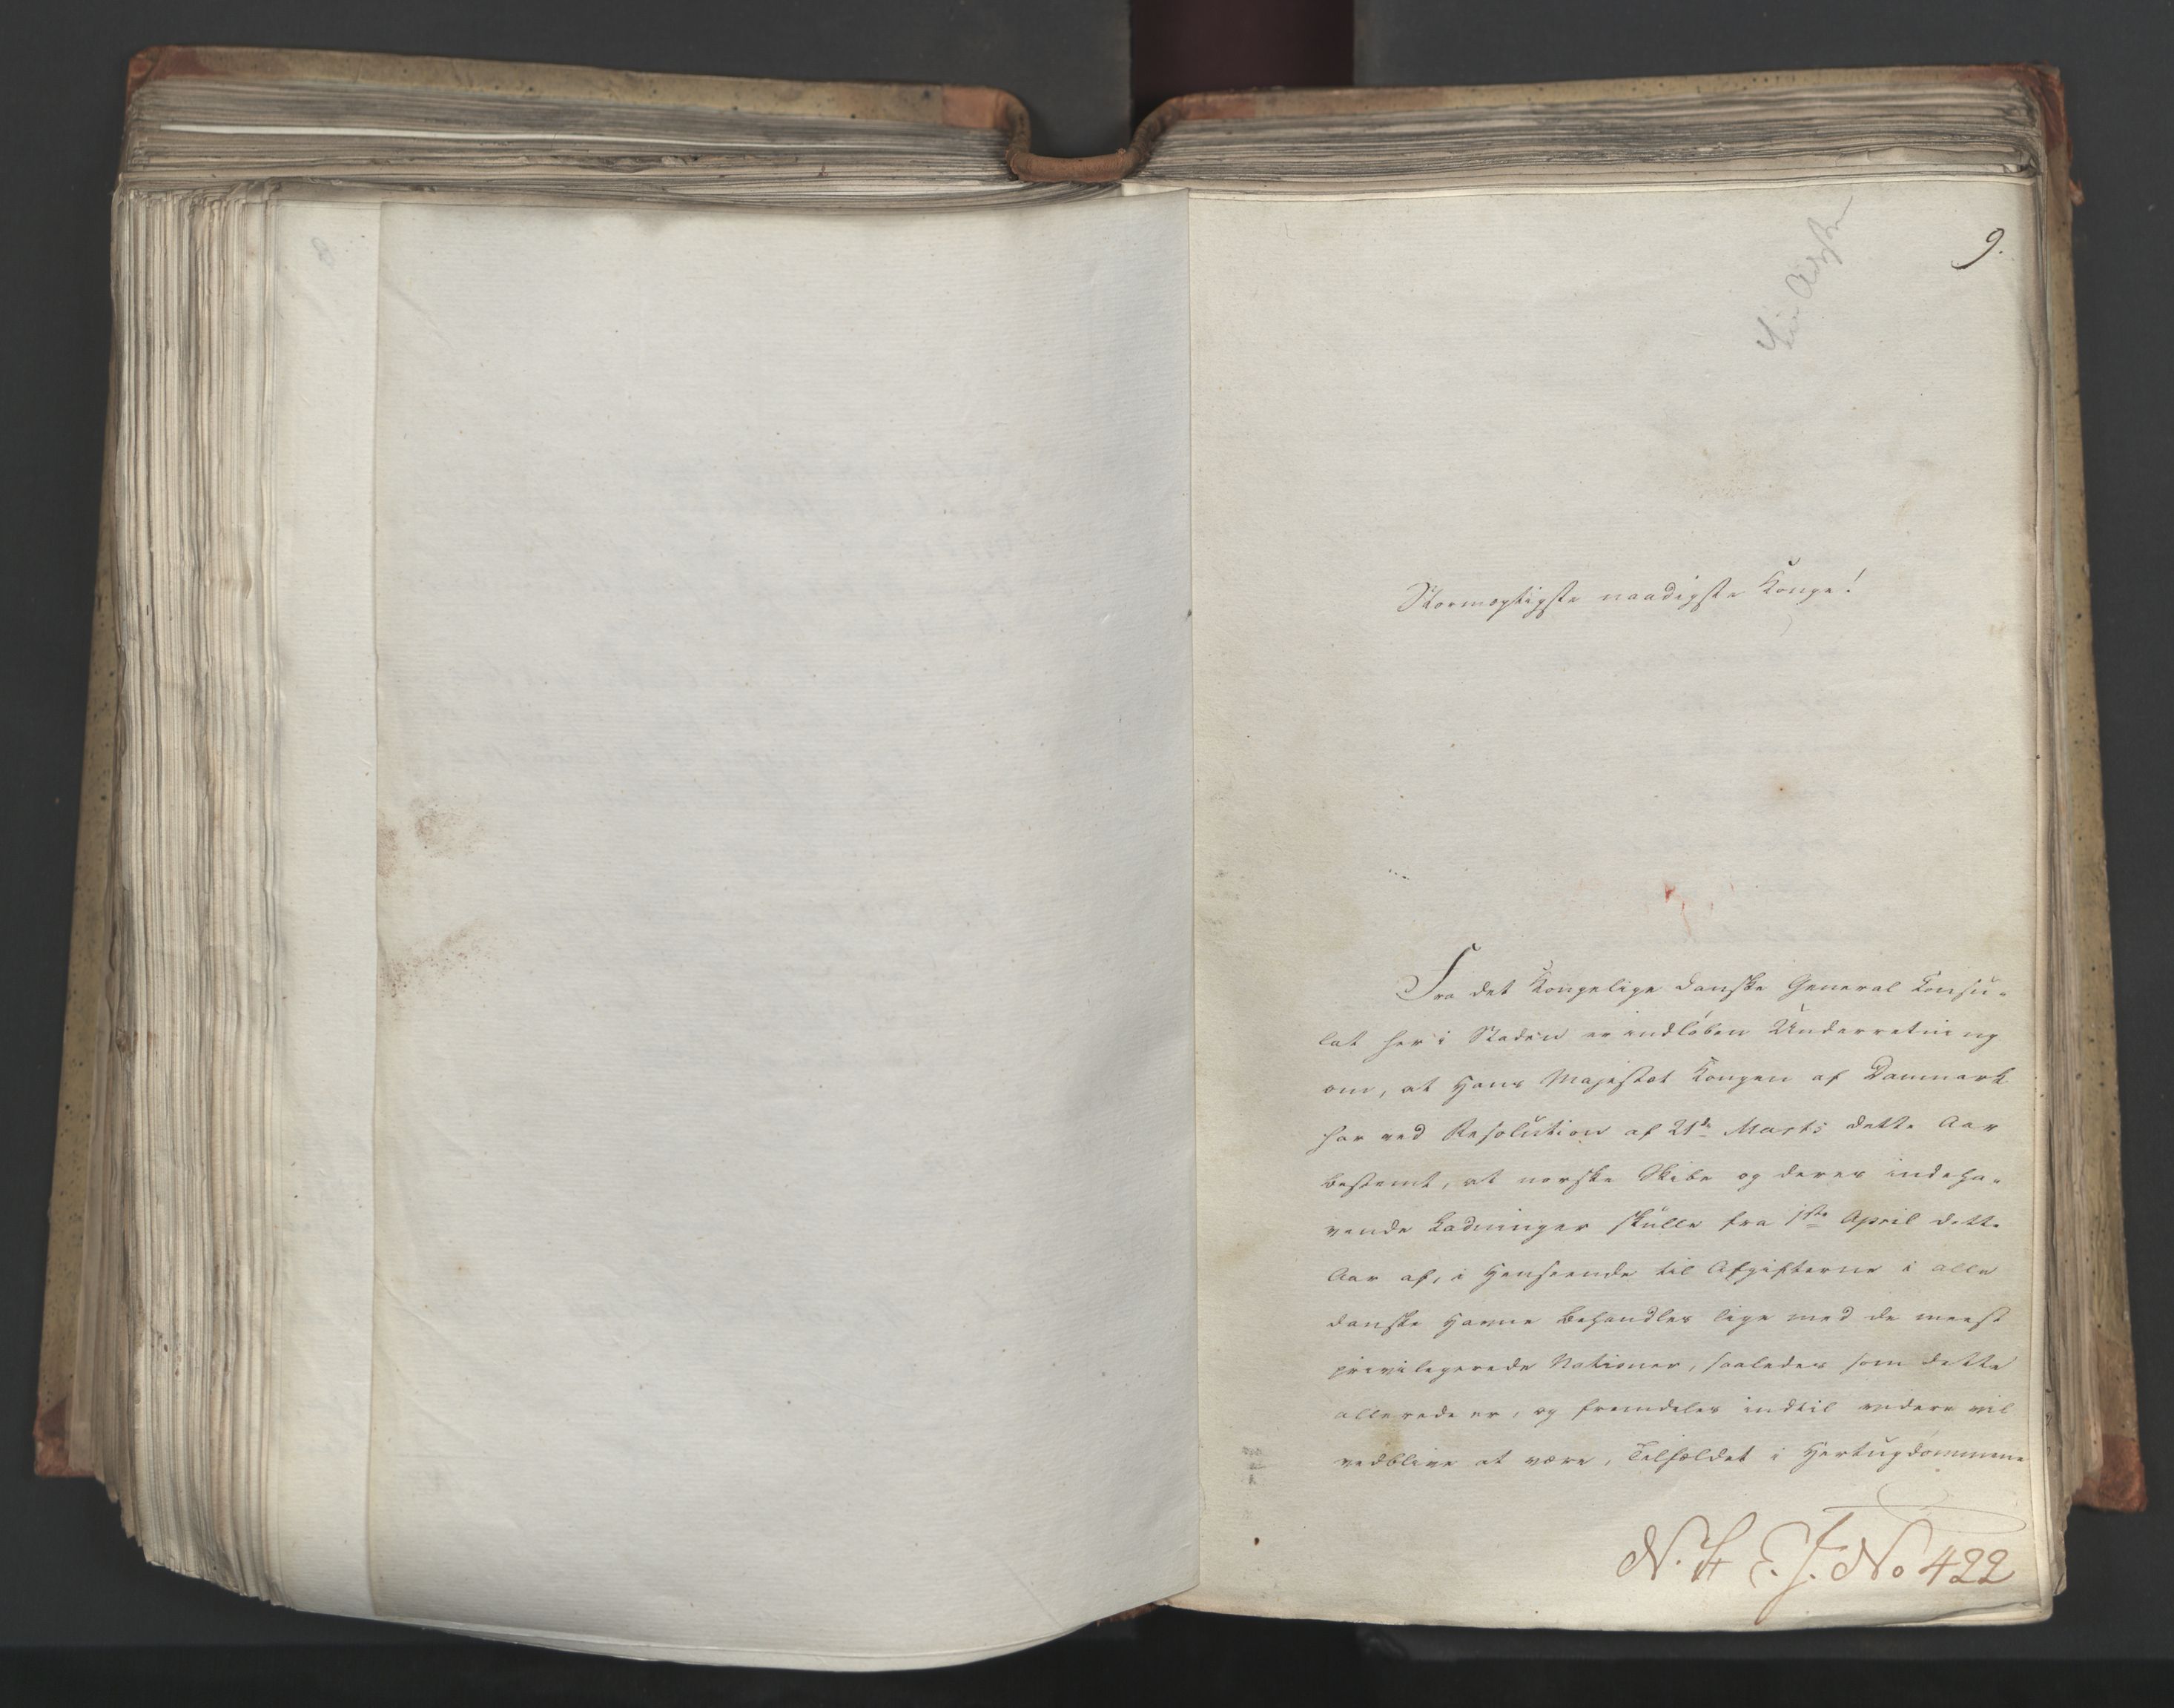 9.
Stormægtigste naadigste Konge!
Fra det Kongelige danske General Consu-
lat her i Staden er indløben Underretning
om, at Hans Majestæt Kongen af Danmark
har ved Resolution af 21de Marts dette Aar
bestemt, at norske Skibe og deres indeha-
vende Ladninger skulle fra 1ste April dette
Aar af, i Henseende til Afgifterne i alle
danske Havne behandles lige med de meest
privilegerede Nationer, saaledes som dette
allerede er, og fremdeles indtil videre vil
vedblive at være, Tilfældet i Hertugdømmene
No 422